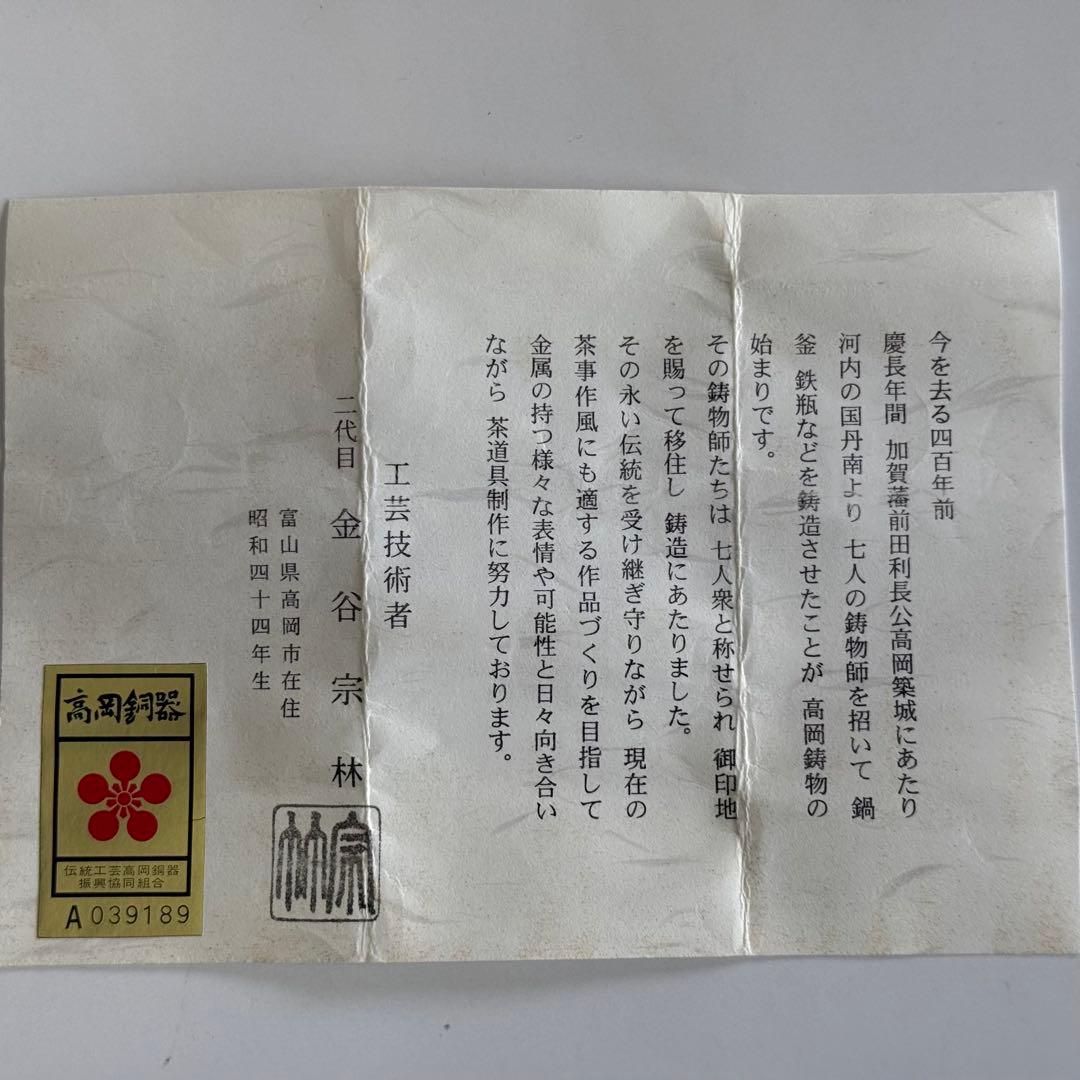 今を去る四百年前
慶長年間 加賀藩前田利長公高岡築城にあたり
河内の国丹南より 七人の鋳物師を招いて 鍋
釜 鉄瓶などを鋳造させたことが 高岡鋳物の
始まりです。
その鋳物師たちは 七人衆と称せられ 御印地
を賜って移住し 鋳造にあたりました。
その永い伝統を受け継ぎ守りながら 現在の
茶事作風にも適する作品づくりを目指して
金属の持つ様々な表情や可能性と日々向き合い
ながら 茶道具制作に努力しております。
工芸技術者
二代目 金谷宗林
富山県高岡市在住
昭和四十四年生
宗林
高岡銅器
伝統工芸高岡銅器
振興協同組合
A 039189